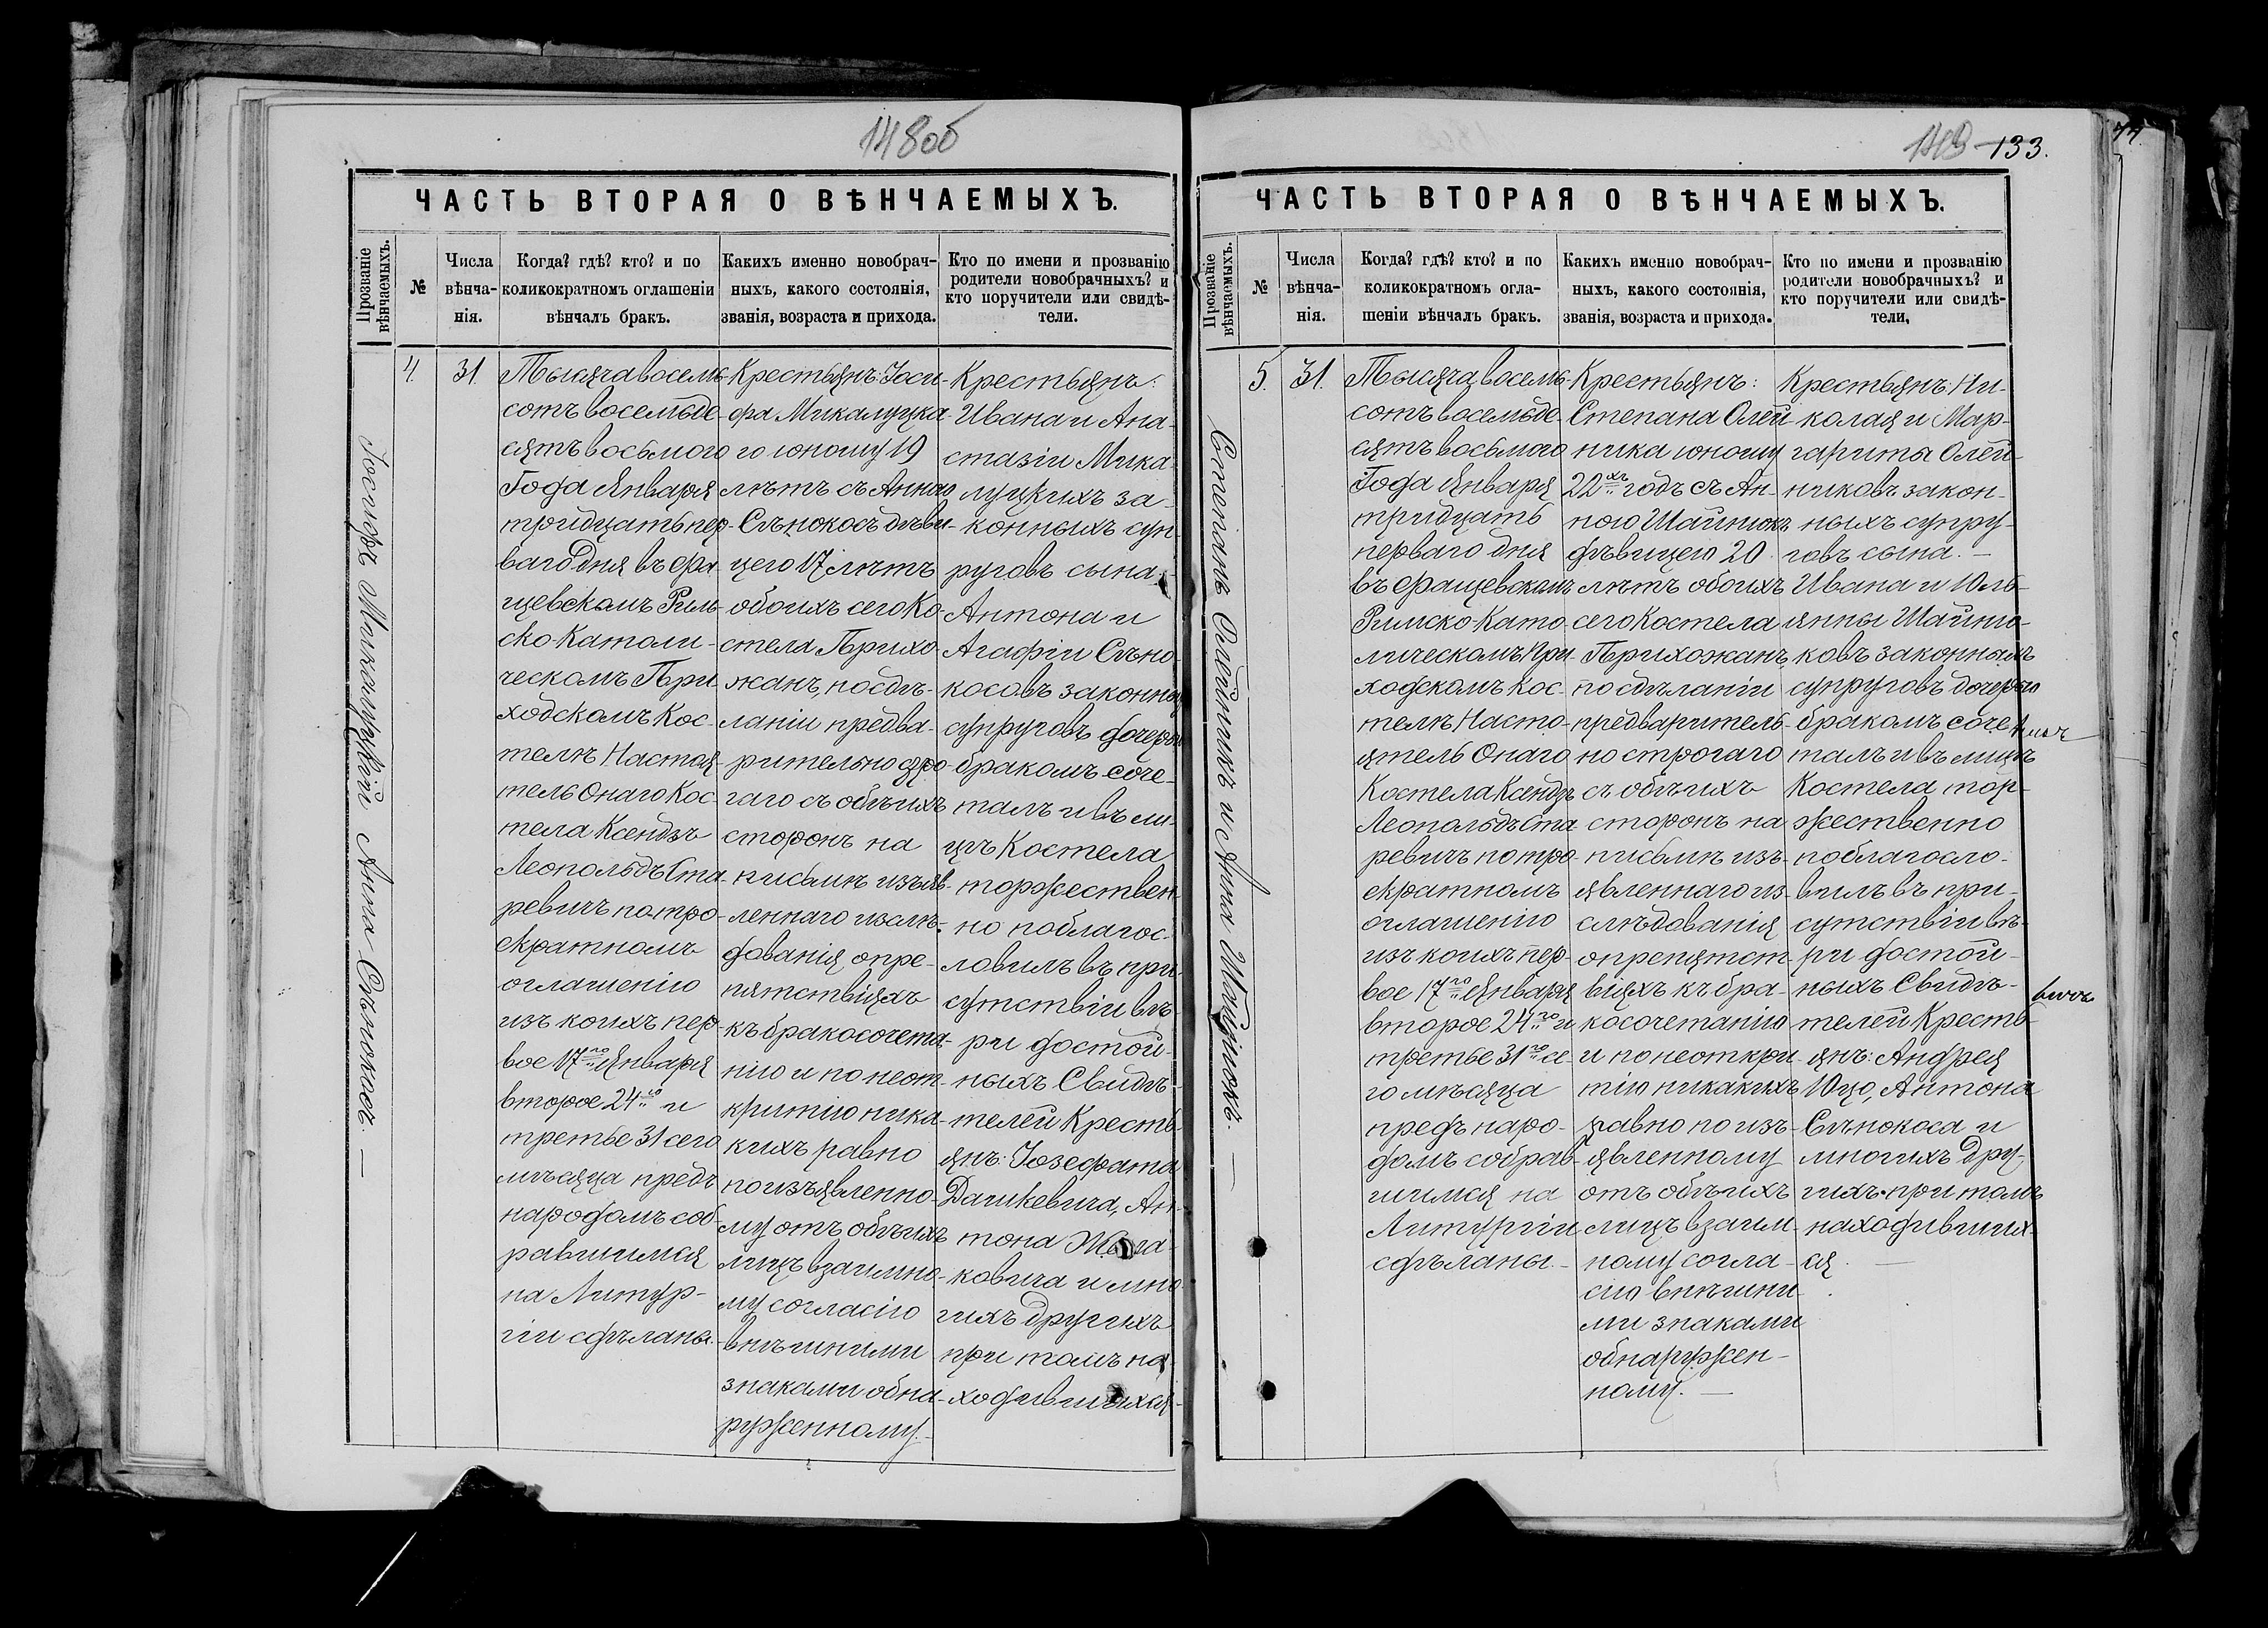 148об
ЧАСТЬ ВТОРАЯ О ВѢНЧАЕМЫХЪ.
Прозваніе
вѣнчаемыхъ.
№
Числа
вѣнча-
нія.
Когда? гдѣ? кто? и по
коликократномъ оглашеніи
вѣнчалъ бракъ.
Какихъ именно новобрач-
ныхъ, какого состоянія,
званія, возраста и прихода.
Кто по имени и прозванію
родители новобрачныхъ? и
кто поручители или свидѣ-
тели.
Іосифъ Микалуцкій и Анна Сѣнокосъ. —
4.
31.
Тысяча восемь
сотъ восемьде
сятъ восьмого
Года Января
тридцать пер-
ваго дня въ Фа
щевскомъ Рим-
ско-Католи-
ческомъ При
ходскомъ Кос-
телѣ Настоя
тель Онаго Кос
тела Ксендзъ
Леопольдъ Ста
ревичъ по тро-
екратномъ
оглашеніи
изъ коихъ пер-
вое 17го Января
второе 24го и
третье 31 сего
мѣсяца предъ
народомъ соб-
равшимся
на Литур-
гіи сдѣланы.
Крестьянъ: Іоси-
фа Микалуцка
го юношу 19
лѣтъ съ Анною
Сѣнокосъ дѣви-
цею 17 лѣтъ
обоихъ сего Ко-
стела Прихо-
жанъ, по сдѣ-
ланіи предва-
рительно стро-
гаго съ обѣихъ
сторонъ на
письмѣ изъяв-
леннаго изслѣ-
дованія о пре-
пятствіяхъ
къ бракосочета-
нію и по неот-
критію ника-
кихъ равно
по изъявленно-
му отъ обѣихъ
лицъ взаимно-
му согласію
внѣшними
знаками обна-
руженному.
Крестьянъ:
Ивана и Ана-
стазіи Мика
луцкихъ за-
конныхъ суп-
руговъ сына
Антона и
Агафіи Сѣно-
косовъ законныхъ
супруговъ дочерью
бракомъ соче-
талъ и въ ли-
цѣ Костела
торжествен-
но поблагос-
ловилъ въ при-
сутствіи вѣ-
ри достой-
ныхъ Свидѣ-
телей Кресть-
янъ: Іозефата
Дашкевича, Ан-
тона
ковича и мно-
гихъ другихъ
при томъ на-
ходившихся
149 133.
77
ЧАСТЬ ВТОРАЯ О ВѢНЧАЕМЫХЪ.
Прозваніе
вѣнчаемыхъ.
№
Числа
вѣнча-
нія.
Когда? гдѣ? кто? и по
коликократномъ огла-
шеніи вѣнчалъ бракъ.
Какихъ именно новобрач-
ныхъ, какого состоянія,
званія, возраста и прихода.
Кто по имени и прозванію
родители новобрачныхъ? и
кто поручители или свидѣ-
тели,
Степанъ Олейникъ и Анна Шайнюкъ. —
5.
31.
Тысяча восемь
сотъ восемьде-
сятъ восьмого
Года Января
тридцать
перваго дня
въ Фащевскомъ
Римско Като-
лическомъ При-
ходскомъ Кос-
телѣ Насто-
ятель Онаго
Костела Ксендзъ
Леопольдъ Ста
ревичъ по тро-
екратномъ
оглашеніи
изъ коихъ пер-
вое 17го Января
второе 24го и
третье 31го се-
го мѣсяца
предъ наро-
домъ собрав-
шимся на
Литургіи
сдѣланы. —
Крестьянъ:
Степана Олей
ника юношу
22хъ годъ съ Ан-
ною Шайнюкъ
дѣвицею 20
лѣтъ обоихъ
сего Костела
Прихожанъ
по сдѣланіи
предваритель-
но строгаго
съ обѣихъ
сторонъ на
письмѣ изъ-
явленнаго из-
слѣдованія
о препятст-
віяхъ къ бра-
косочетанію
и по неоткри-
тію никакихъ
равно по изъ-
явленному
отъ обѣихъ
лицъ взаим-
ному согла-
сію внѣшни-
ми знаками
обнаружен-
ному. —
Крестьянъ: Ни-
колая и Мар-
гариты Олей-
никовъ закон-
ныхъ супру-
говъ сына. —
Ивана и Юль-
янны Шайню-
ковъ законныхъ
супруговъ дочерью
бракомъ соче
талъ и въ лицѣ
Костела тор-
жественно
поблагосло-
вилъ въ при-
сутствіи вѣ-
ри достой-
ныхъ Свидѣ-
телей Кресть-
янъ: Андрея
Юцо, Антона
Сѣнокоса и
многихъ дру-
гихъ при томъ
находивших-
ся. —